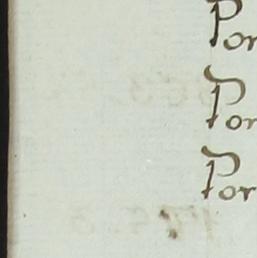 Por
Por
Por